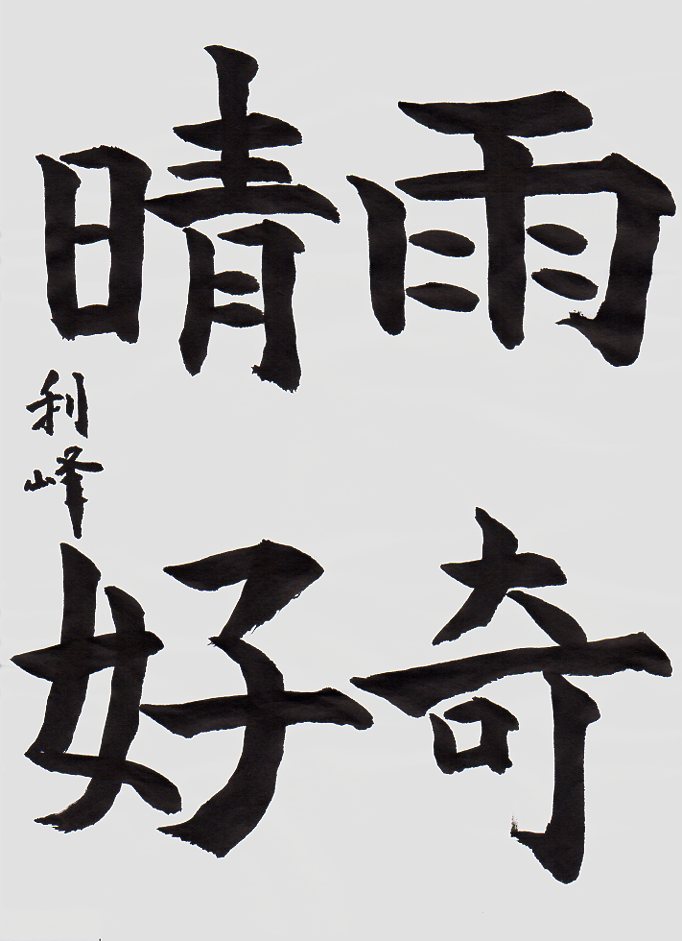 雨奇
晴好
利峰